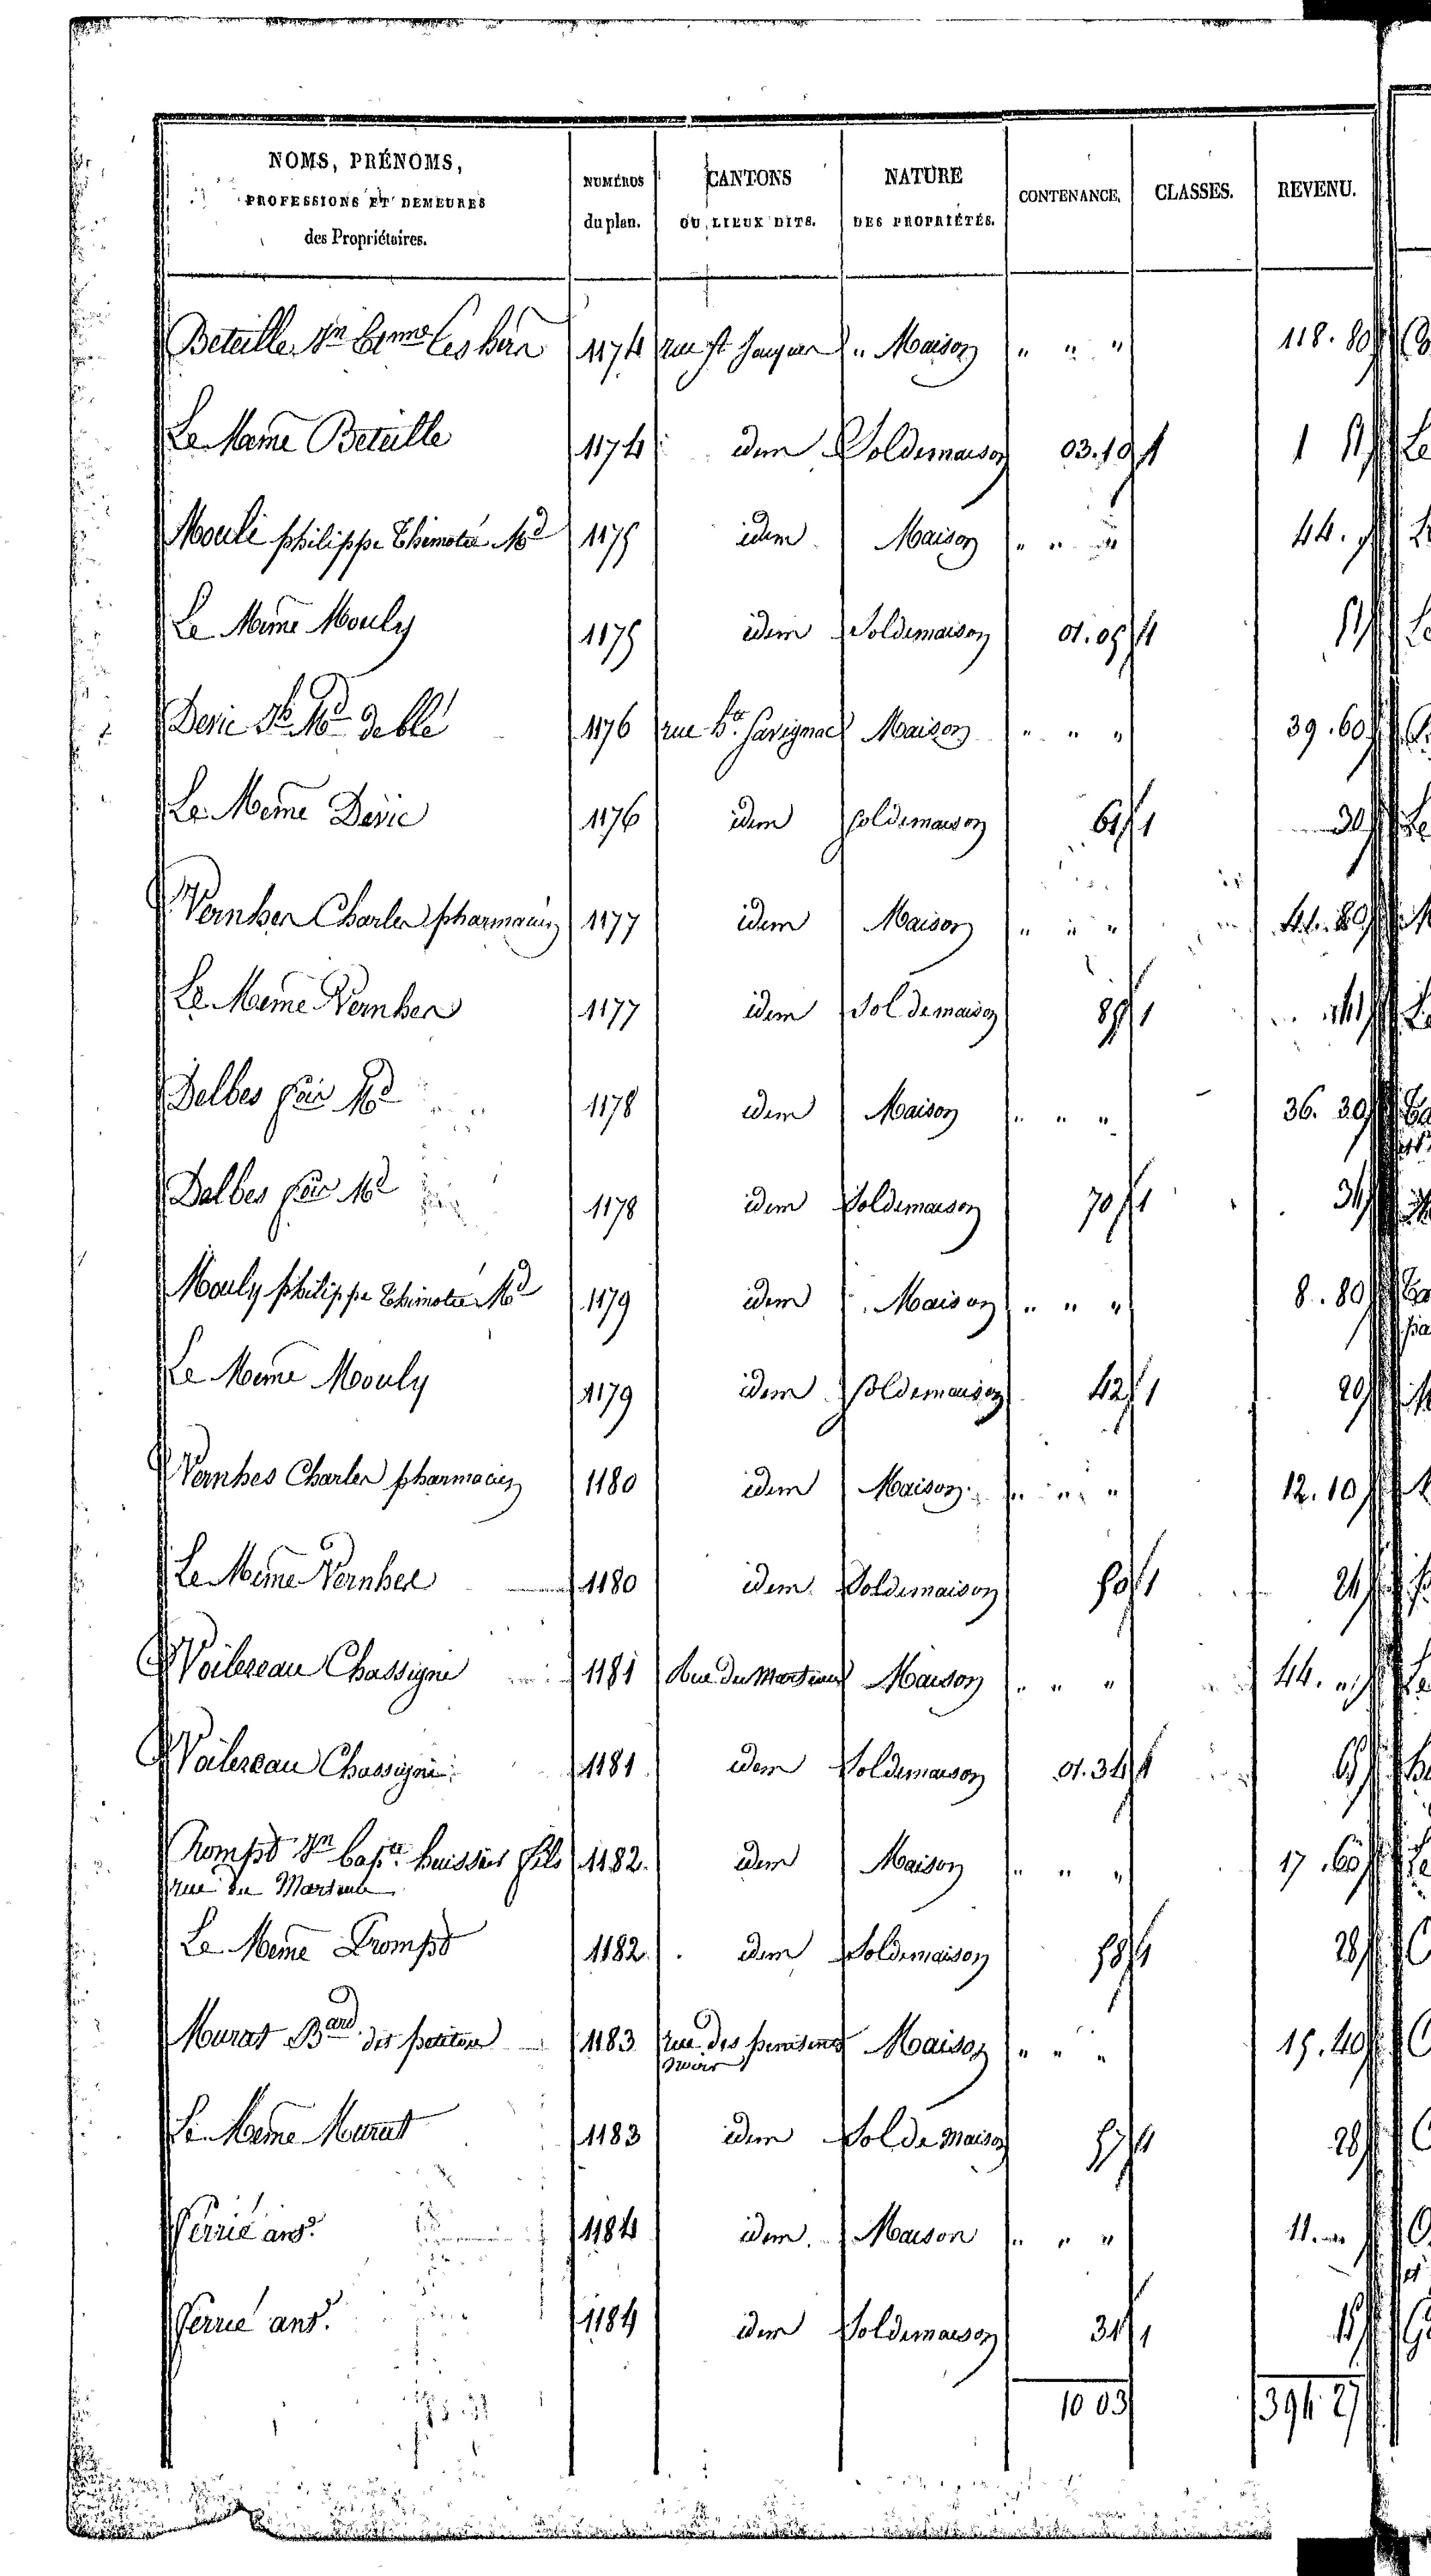 NOMS, PRÉNOMS,
PROFESSIONS ET DEMEURES
des Propriétaires.
NUMÉROS
du plan.
CANTONS
OU LIEUX DITS.
NATURE
DES PROPRIÉTÉS.
CONTENANCE.
CLASSES.
REVENU.
Beteille Les 1174 rue St Jacques " Maison " " " 118.80
Le Meme Beteille 1174 idem Sol de maison 03.10 1 1
Mouli philippe Thimotée Md 1175 idem Maison " " " 44. "
Le Meme Mouly 1175 idem Sol de maison 01.05 1
Md de blé 1176 rue Savignac Maison " " " 39.60
Le Meme 1176 idem sol de maison 61 1 30
Vernhes Charles pharmacien 1177 idem Maison " " "
Le Meme Vernhes 1177 idem Sol de maison 89 1
Delbes Md 1178 idem Maison " " " 36.30
Delbes Md 1178 idem Sol de maison 70 1 34
Mouly philippe Thimotée Md 1179 idem Maison " " " 8.80
Le Meme Mouly 1179 idem sol de maison 42 1 20
Vernhes Charles pharmacien 1180 idem Maison " " " 12.10
Le Meme Vernhes 1180 idem Sol de maison 50 1 24
Voilereau Chassigne 1181 Rue du Maison " " " 44. "
Voilereau Chassigne 1181 idem Sol de maison 01.34 1
huissier fils 1182 idem Maison " " " 17.60
rue du
Le Meme 1182 idem Sol de maison 58 1 28
Murat Bard dit 1183 rue des penitents Maison " " " 15.40
noirs
Le Meme Murat 1183 idem Sol de Maison 57 1 28
Ferrié 1184 idem Maison " " " 11. "
Ferrié 1184 idem Sol de maison 31 1 15
10 03 394 27